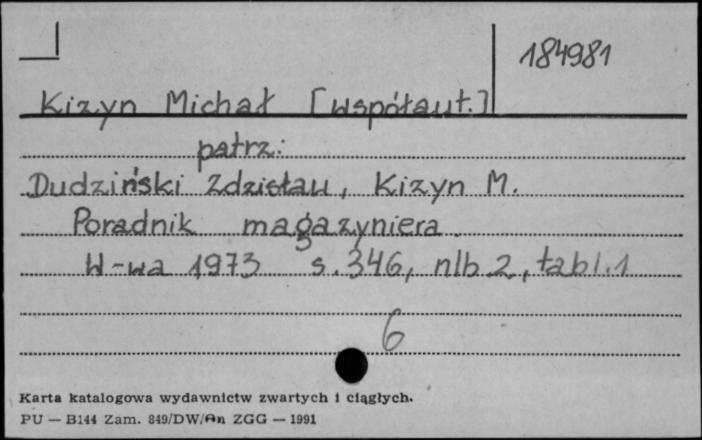 184981
Kizyn Michał [współaut.]
patrz:
Dudziński Zdzisław, Kizyn M.
Poradnik magazyniera
W-wa 1973 s. 346, nlb 2, tabl. 1
6
Karta katalogowa wydawnictw zwartych i ciągłych.
PU — B144 Zam. 849/DW/An ZGG — 1991